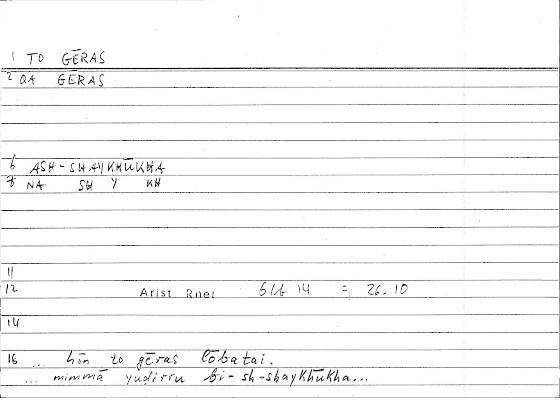 1 TO GĒRAS
2 QA GĒRAS
6 ASH-SHAYKHŪKHA
8 NA SH Y KH
11
12 Arist Rhet 61b 14 = 26.10
14
16 ... hōn to gēras lōbatai.
... mimmā yuḍirru bi-sh-shaykhūkha...